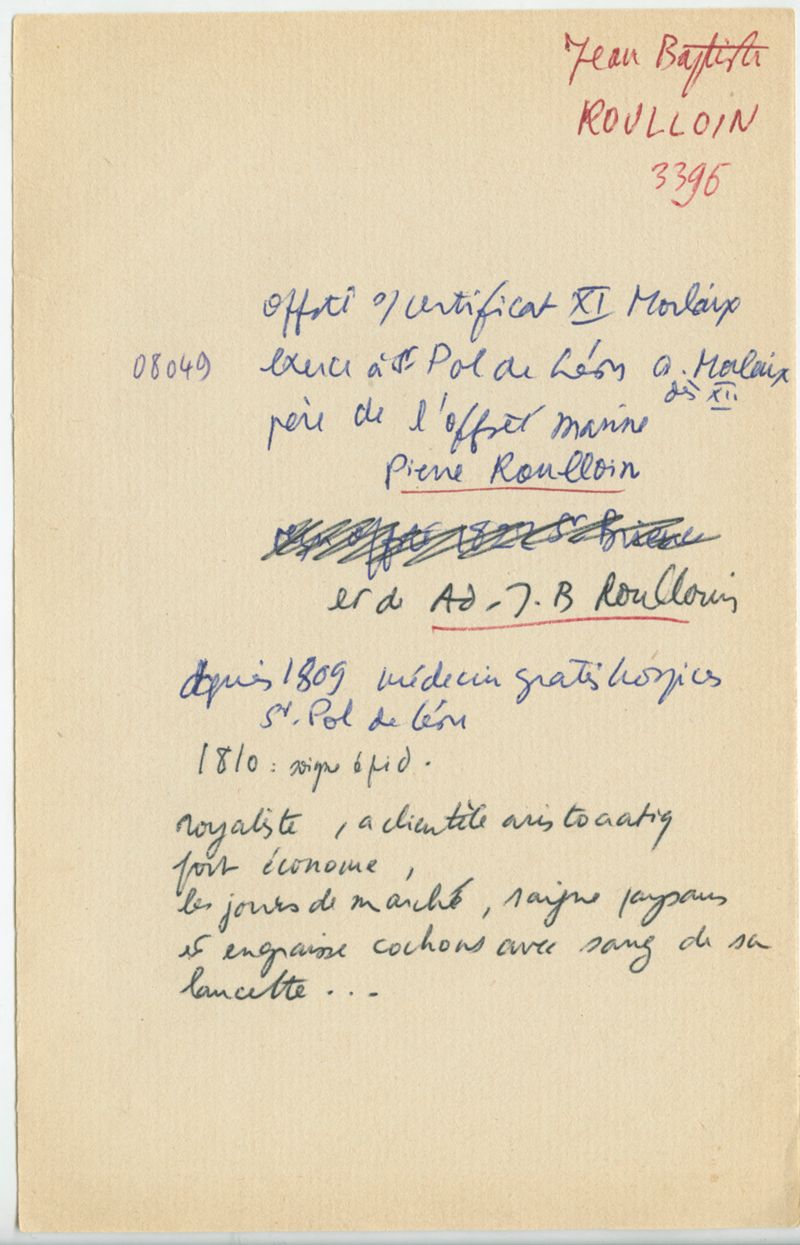 Jean Baptiste
ROULLOIN
3395
offsté s/ certificat XI Morlaix
08049 exerce à St Pol de Léon a. Morlaix
dès XII
père de l'offsté marine
Pierre Roulloin
offsté 1822 St Brieuc
et de Ad. J. B Roulloin
depuis 1809 médecin gratis hospices
St. Pol de Léon
1810 : soigne épid.
royaliste, a clientèle aristocratiq
fort économe,
les jours de marché, saigne paysans
et engraisse cochons avec sang de sa
lancette ...